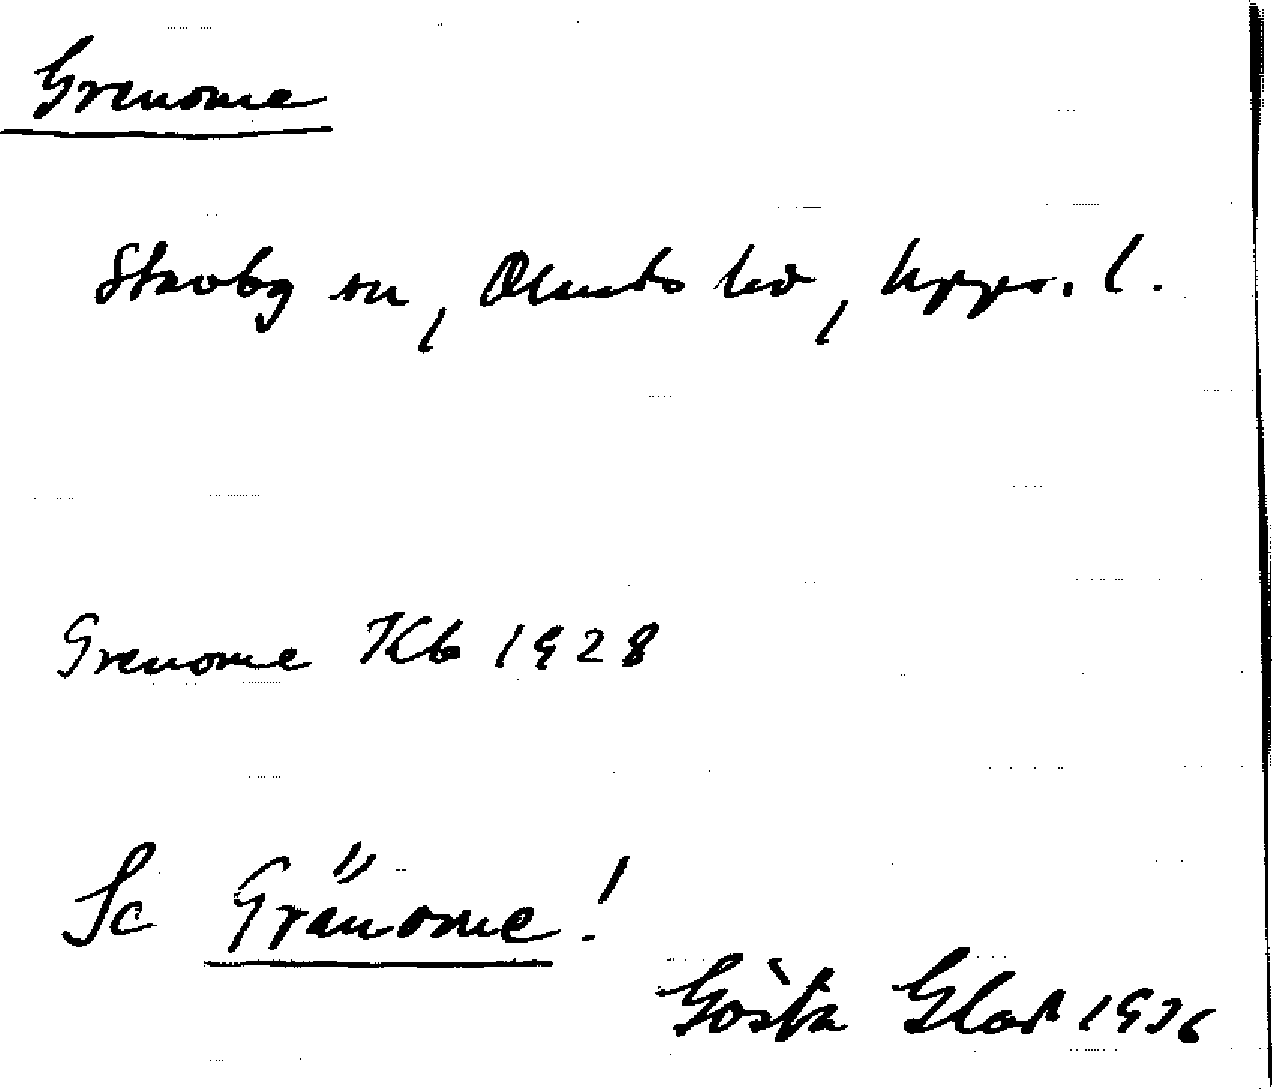 Grenome
Stavby sn, Olands hd, Upps. l.
Grenome Kb 1928
Se Gränome!
Gösta Glad 1936